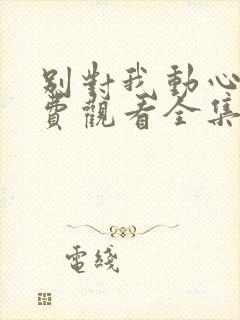 別對我動心
費觀看全集
電綫